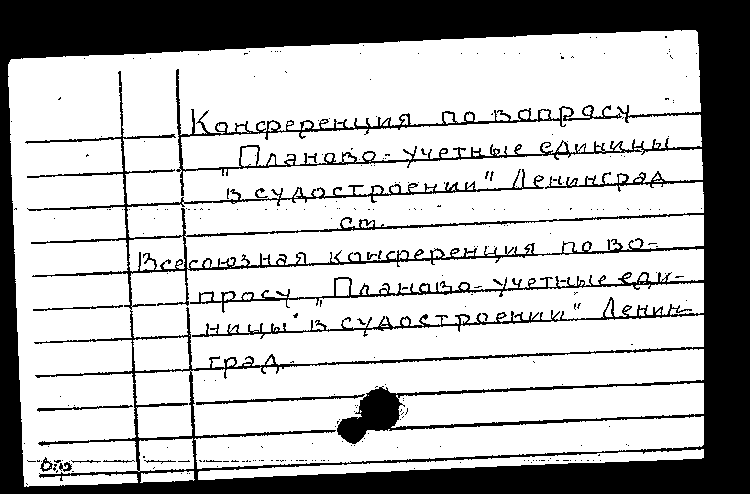 Конференция по вопросу
„Планово-учетные единицы
в судостроении" Ленинград
см.
Всесоюзная конференция по во-
просу „Планово-учетные еди-
ницы в судостроении" Ленин-
град.